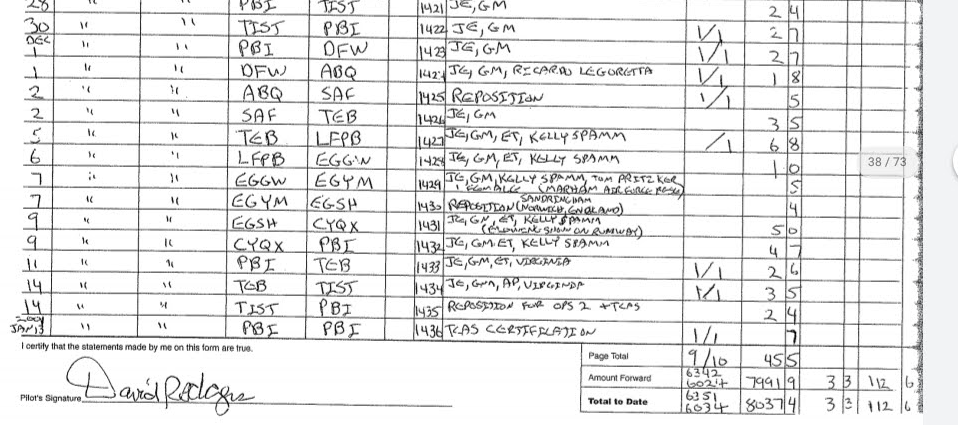 28 " " PBI TIST 1421 JE, GM 2 4
30 " " TIST PBI 1422 JE, GM 1/1 2 7
DEC 1 " " PBI DFW 1423 JE, GM 1/1 2 7
1 " " DFW ABQ 1424 JE, GM, RICARDO LEGORETTA 1/1 1 8
2 " " ABQ SAF 1425 REPOSITION 1/1 5
2 " " SAF TEB 1426 JE, GM 3 5
5 " " TEB LFPB 1427 JE, GM, ET, KELLY SPAMM /1 6 8
6 " " LFPB EGGW 1428 JE, GM, ET, KELLY SPAMM 1 0
7 " " EGGW EGYM 1429 JE, GM, KELLY SPAMM, TOM PRITZKER
1 FEMALE (MARHAM AIR FORCE BASE) 5
SANDRINGHAM
7 " " EGYM EGSH 1430 REPOSITION (NORWICH, ENGLAND) 4
9 " " EGSH CYQX 1431 JE, GM, ET, KELLY SPAMM
(PLOWING SNOW ON RUNWAY) 5 0
9 " " CYQX PBI 1432 JE, GM, ET, KELLY SPAMM 4 7
11 " " PBI TEB 1433 JE, GM, ET, VIRGINIA 1/1 2 6
14 " " TEB TIST 1434 JE, GM, AP, VIRGINIA 1/1 3 5
14 " " TIST PBI 1435 REPOSITION FOR OPS 2 + TCAS 2 4
2001
JAN 13 " " PBI PBI 1436 TCAS CERTIFICATION 1/1 7
I certify that the statements made by me on this form are true.
Page Total 9/10 45 5
Amount Forward 6342 6024 7991 9 3 3 112 6
Pilot's Signature David Rodgers
Total to Date 6351 6034 8037 4 3 3 112 6
38 / 73